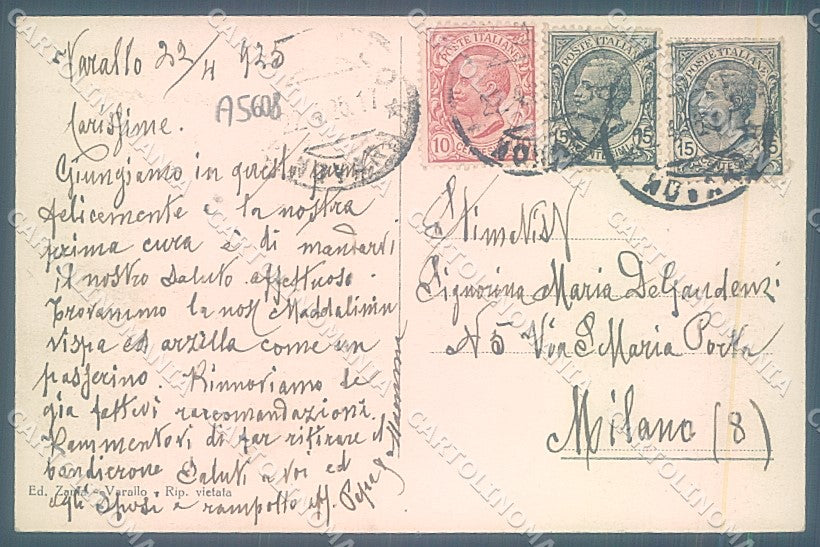 Varallo 22/4 925
A5608
Carissime.
Giungiamo in questo
felicemente e la nostra
prima cura è di mandarvi
il nostro saluto affettuoso.
Troviamo la nos Maddalinin
vispa ed arzilla come un
passerino. Rinnoviamo le
già fattevi raccomandazioni.
Rammentovi di far ritirare il
Saluti a voi ed
agli sposi e rampollo aff. Pepa e Mamma
Ed. Zanfa - Varallo - Rip. vietata
POSTE ITALIANE
10 CENT
POSTE ITALIANE
15 CENTESIMI 15
POSTE ITALIANE
15 CENTESIMI 15
NOVARA
Signorina Maria DeGaudenzi
N 5 Via S Maria Porta
Milano (8)
CARTOLINOMANIA